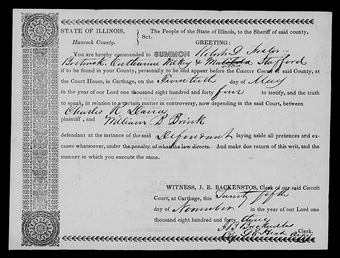 STATE OF ILLINOIS,
Hancock County.
Sct.
The People of the State of Illinois, to the Sheriff of said county.
GREETING:
You are hereby commanded to SUMMON Robert D
Bostwick Catharine & Stafford
if to be found in your county, personally to be and appear before the Circuit Court of said County, at
the Court House, in Carthage, on the day of May
in the year of our Lord one thousand eight hundred and forty four to testify, and the truth
to speak, in relation to a certain matter in controversy, now depending in the said Court, between
Charles R. Dana
plaintiff, and William S Brink
defendant at the instance of the said Defendant laying aside all pretences and ex-
cuses whatsoever, under the penalty of what the law directs. And make due return of this writ, and the
manner in which you execute the same.
WITNESS, J. B. BACKENSTOS, Clerk of our said Circuit
Court, at Carthage, this Twenty fifth
day of November in the year of our Lord one
thousand eight hundred and forty three
J B Backenstos Clerk.